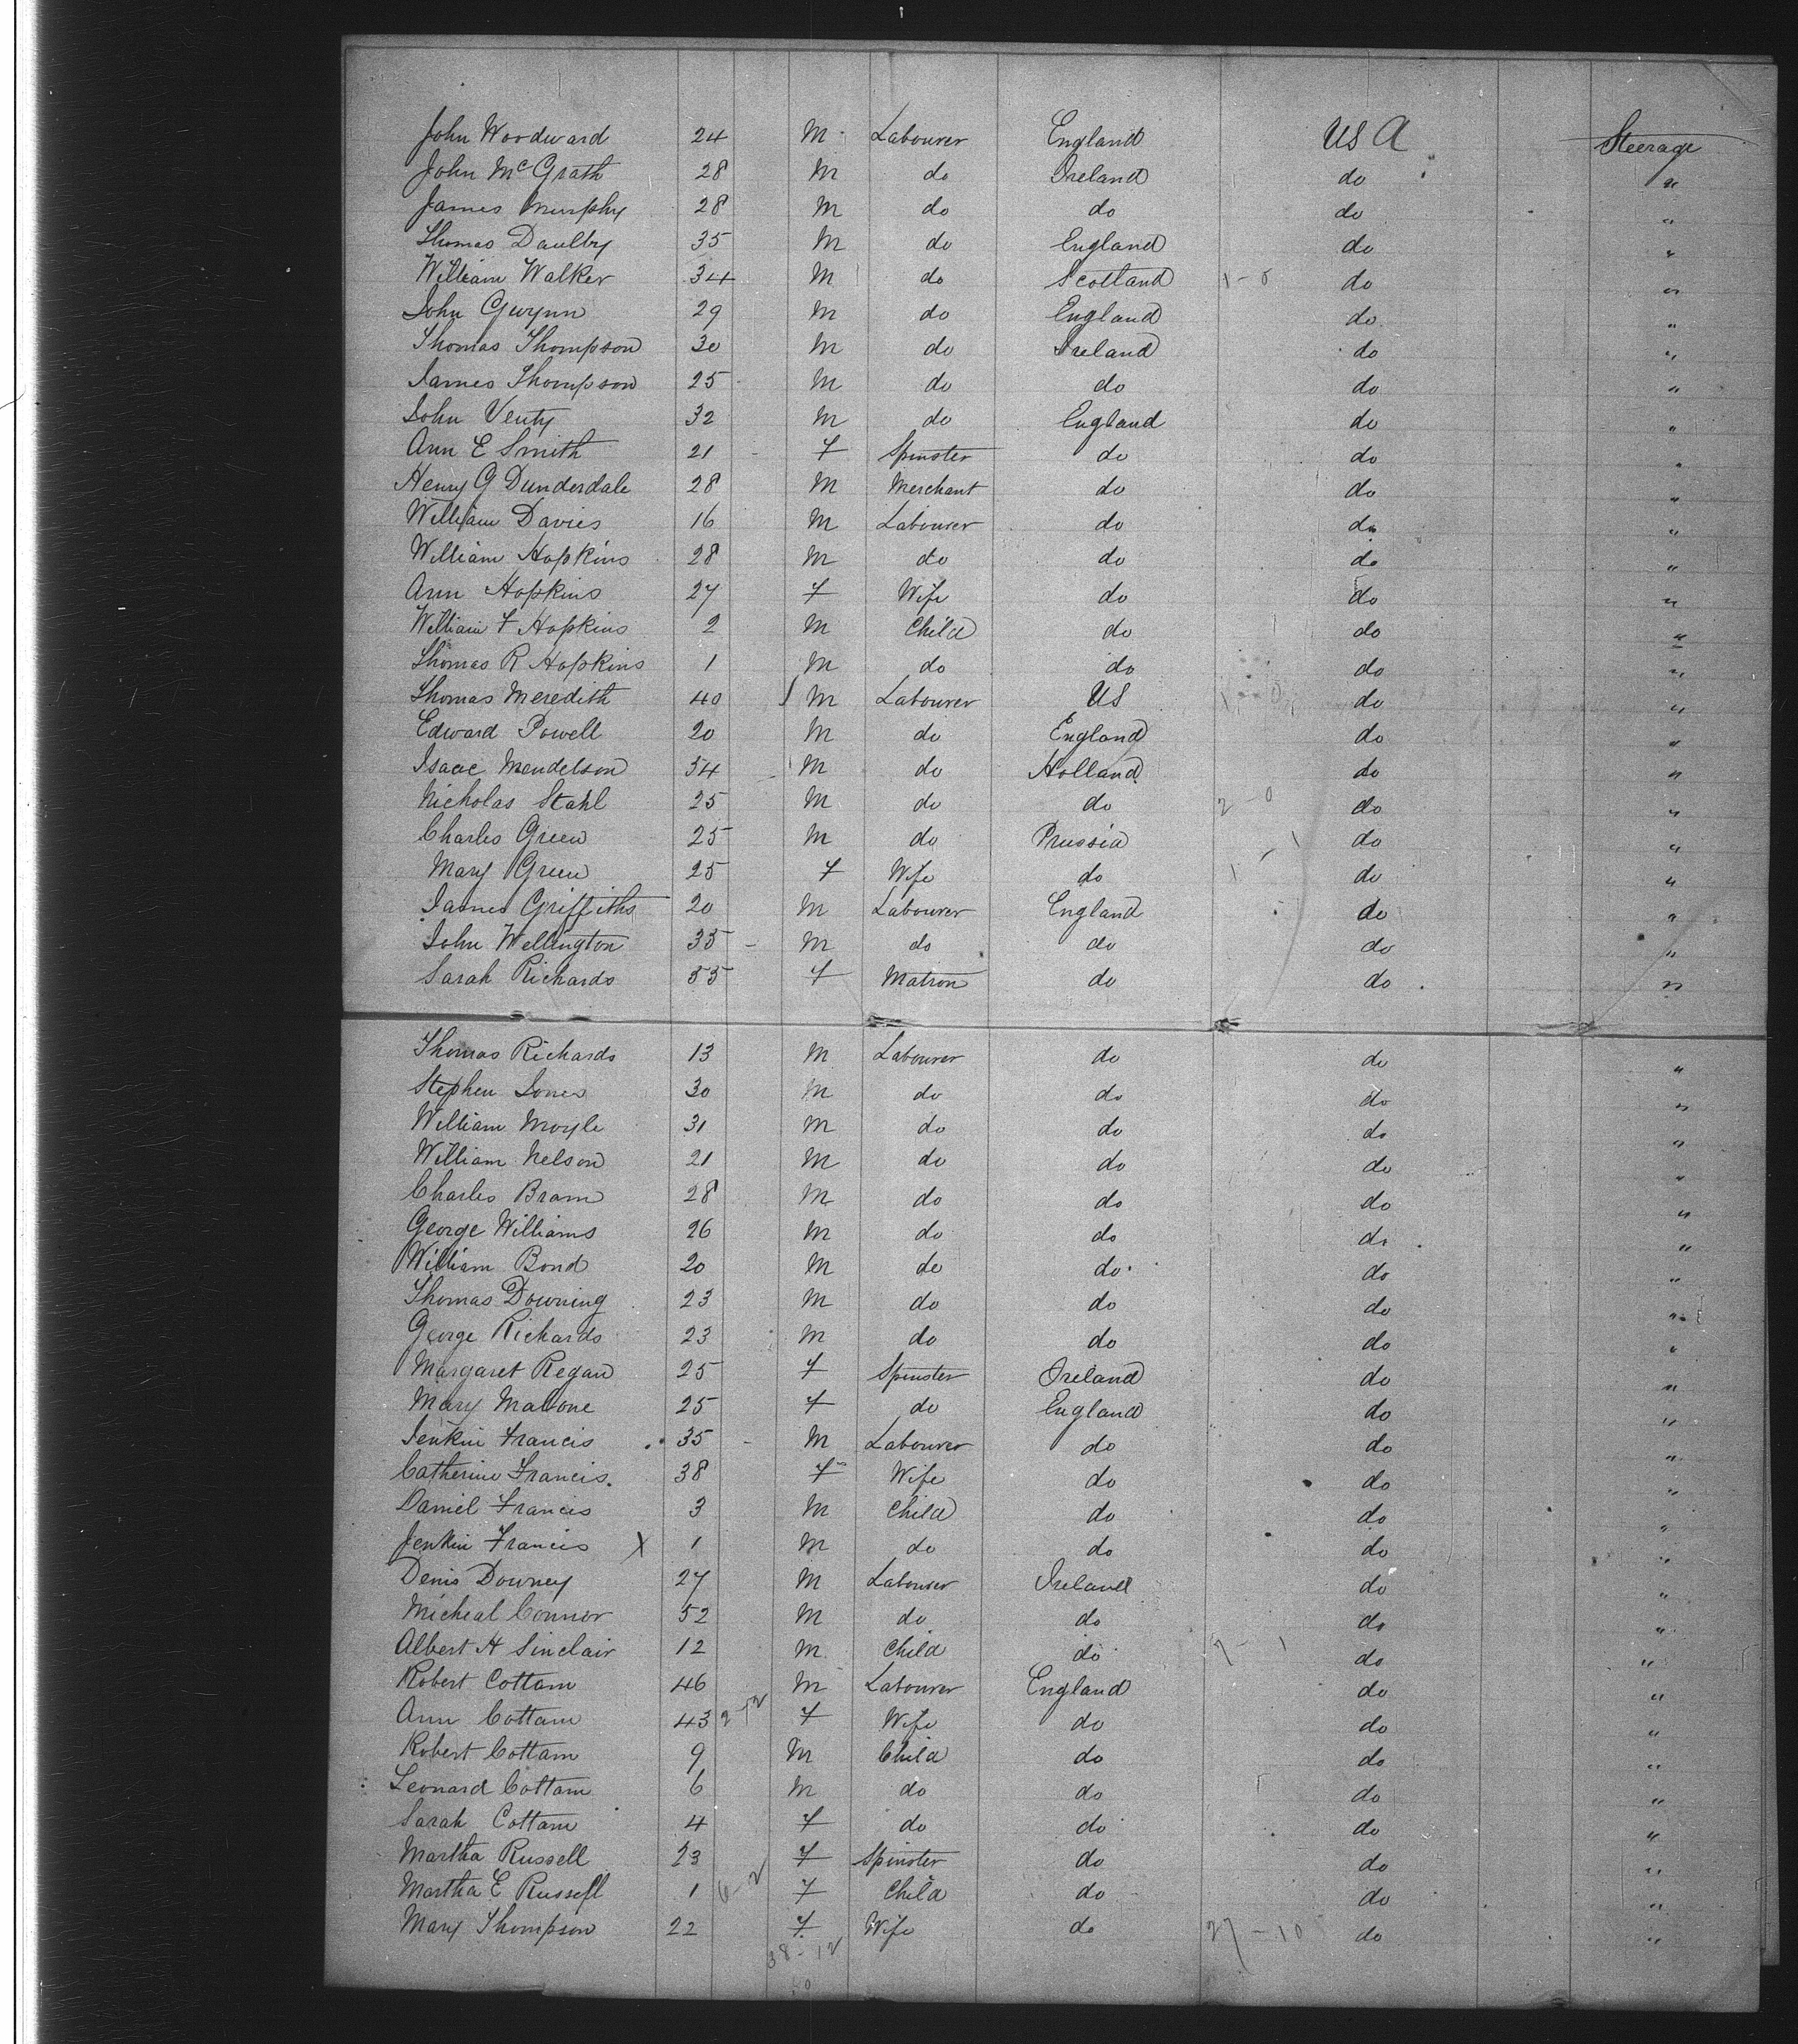 John Woodward 24 M Labourer England USA Steerage
John McGrath 28 M do Ireland do "
James Murphy 28 M do do do "
Thomas Daulby 35 M do England do "
William Walker 34 M do Scotland 1-0 do "
John Gwynn 29 M do England do "
Thomas Thompson 30 M do Ireland do "
James Thompson 25 M do do do "
John Venty 32 M do England do "
Ann E Smith 21 F Spinster do do "
Henry G Dunderdale 28 M Merchant do do "
William Davies 16 M Labourer do do "
William Hopkins 28 M do do do "
Ann Hopkins 27 F Wife do do "
William F Hopkins 2 M Child do do "
Thomas R Hopkins 1 M do do do "
Thomas Meredith 40 M Labourer US do "
Edward Powell 20 M do England do "
Isaac Mendelson 34 M do Holland do "
Nicholas Stahl 25 M do do 2-0 do "
Charles Green 25 M do Prussia do "
Mary Green 25 F Wife do 1-1 do "
James Griffiths 20 M Labourer England do "
John Wellington 35 M do do do "
Sarah Richards 55 F Matron do do "
Thomas Richards 13 M Labourer do do "
Stephen Jones 30 M do do do "
William Moyle 31 M do do do "
William Nelson 21 M do do do "
Charles Bram 28 M do do do "
George Williams 26 M do do do "
William Bond 20 M do do do "
Thomas Downing 23 M do do do "
George Richards 23 M do do do "
Margaret Regan 25 F Spinster Ireland do "
Mary Malone 25 F do England do "
Jenkin Francis 35 M Labourer do do "
Catherine Francis 38 F Wife do do "
Daniel Francis 3 M Child do do "
Jenkin Francis X 1 M do do do "
Denis Downey 27 M Labourer Ireland do "
Micheal Connor 52 M do do do "
Albert H Sinclair 12 M Child do 7-1 do "
Robert Cottam 46 M Labourer England do "
Ann Cottam 43 F Wife do do "
Robert Cottam 9 M Child do do "
Leonard Cottam 6 M do do do "
Sarah Cottam 4 F do do do "
Martha Russell 23 F Spinster do do "
Martha E Russell 1 6-2 F Child do do "
Mary Thompson 22 F Wife do 27-10 do "
38-12